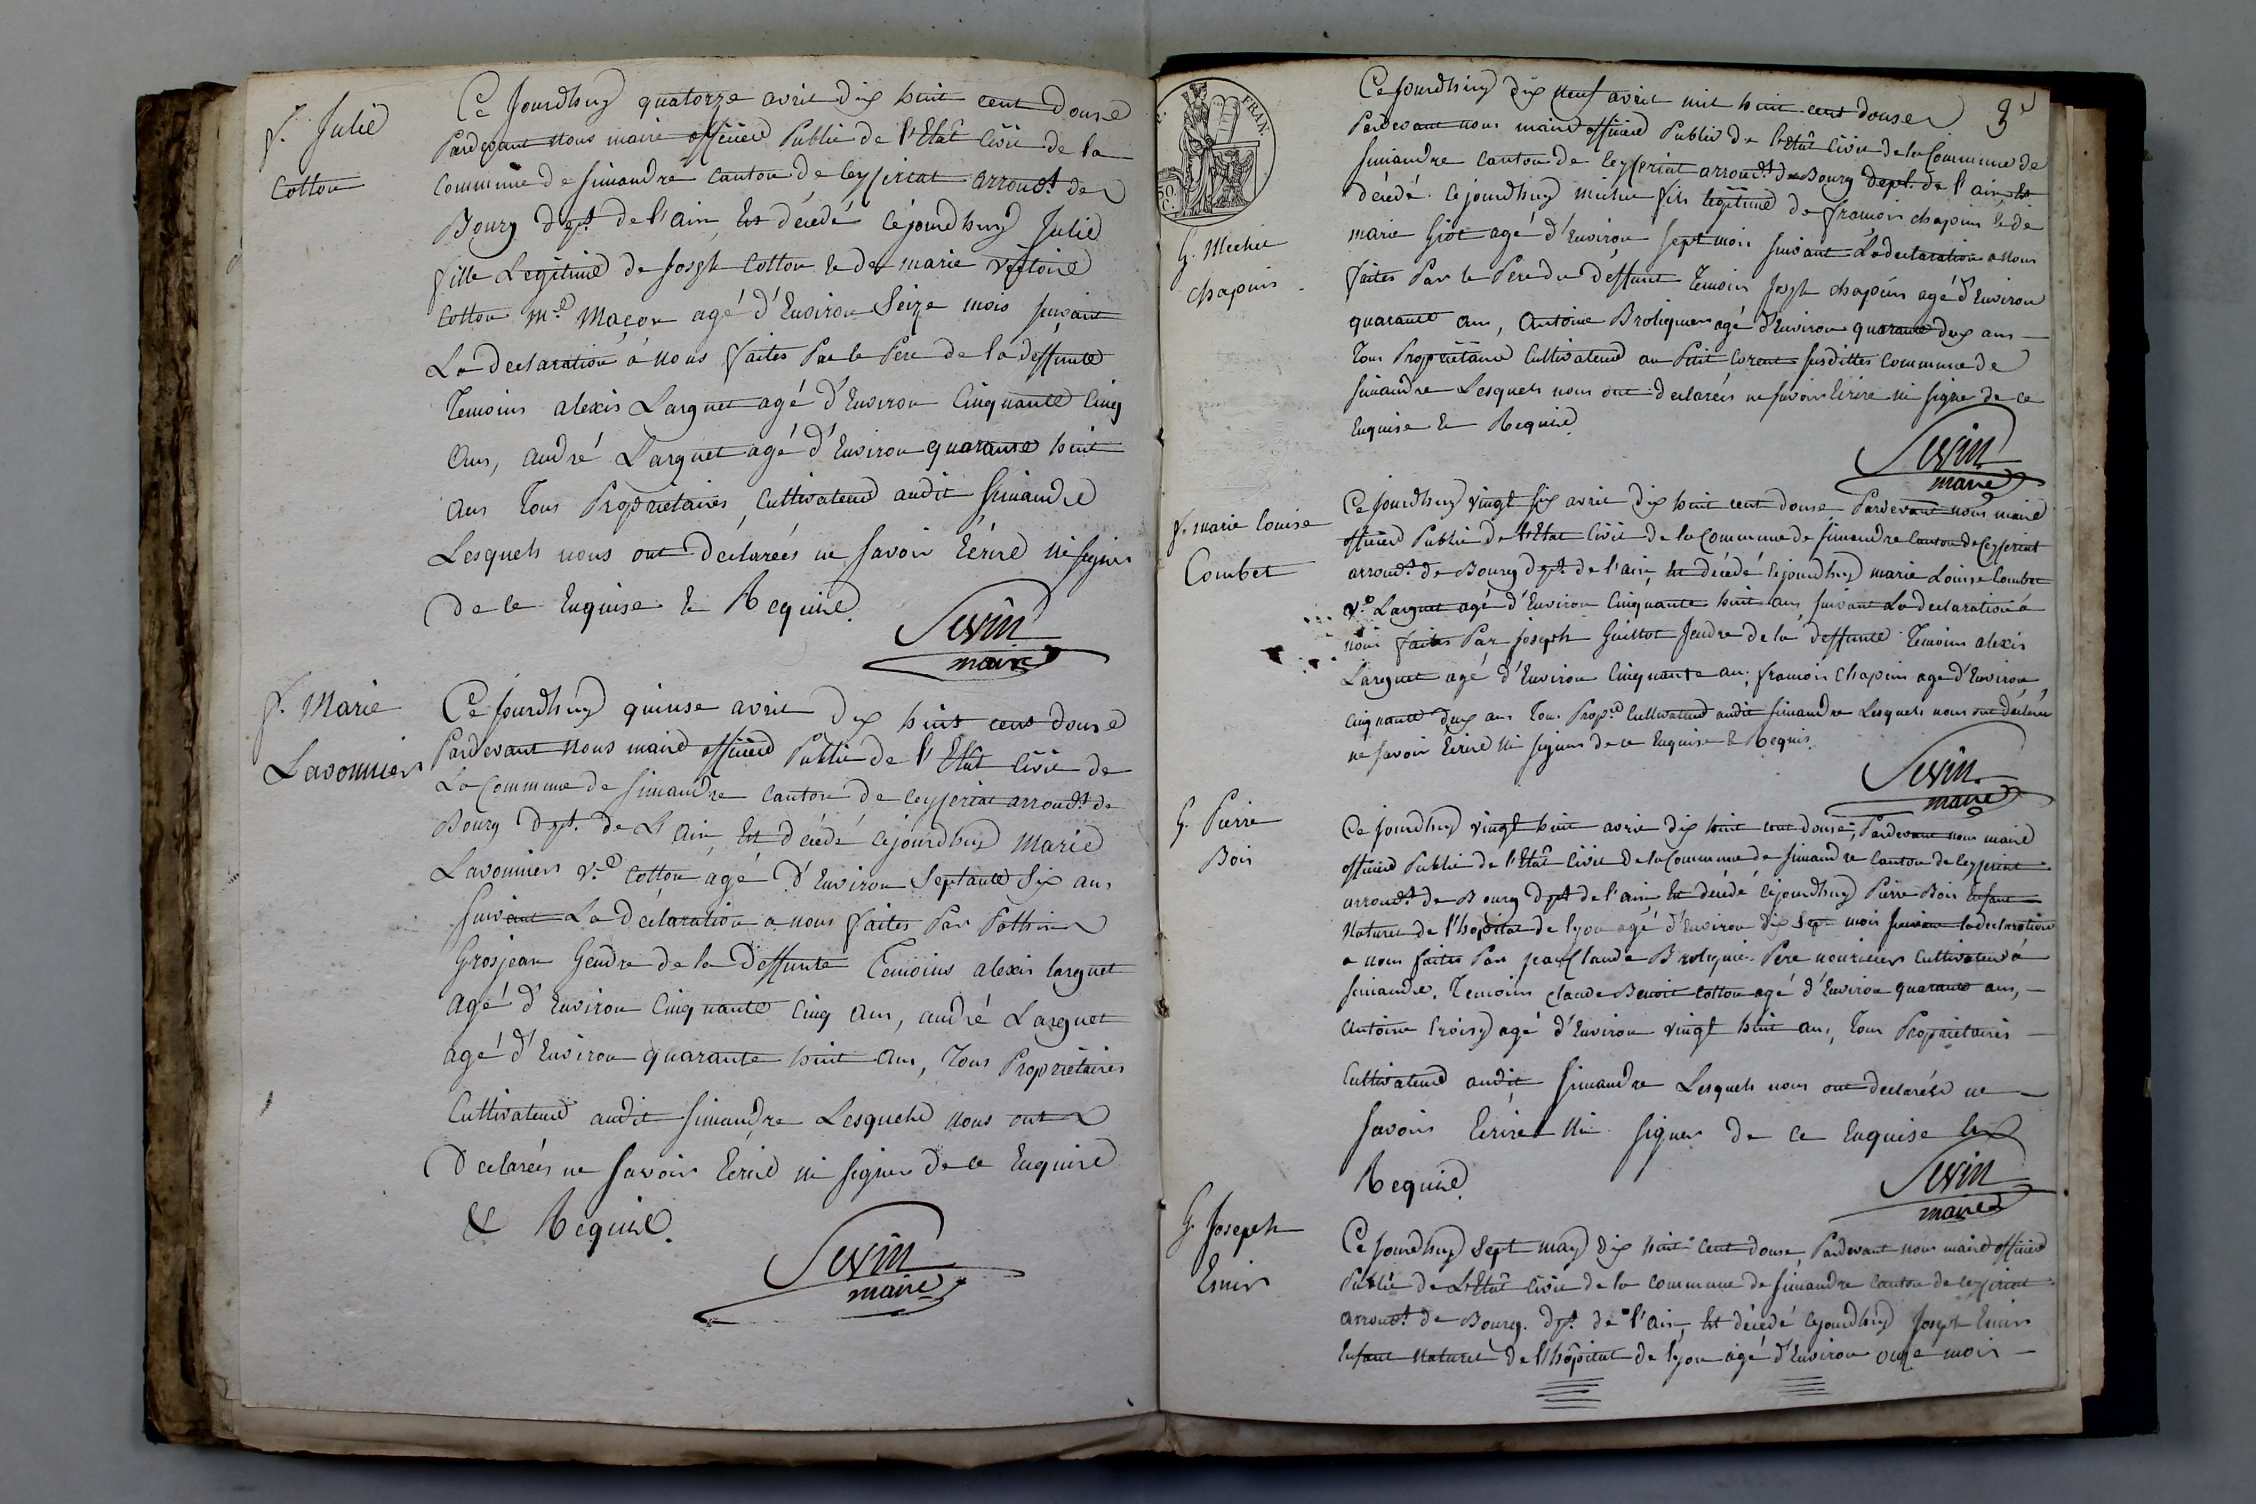 f. Julie
Cotton
Ce Jourdhuy quatorze avril dix huit cent douse
Pardevant nous maire officier Public de l'Etat Civil de la
commune de Simandre canton de ceyseriat arroudt de
Bourg dept de l'ain, Est décédé cejourdhuy Julie
fille Legitime de Joseph Cotton & de marie victoire
Cotton md Maçon agé d'Environ Seize mois suivant
La declaration à nous faites Par le Pere de la deffunte
Temoins alexis Larguet agé d'Environ Cinquante Cinq
ans, andré Larguet agé d'Environ quarante huit
ans Tous Proprietaires Cultivateurs audit Simandre
Lesquels nous ont declareés ne savoir Ecrire ni signer
de ce Enquise & Requise.
Sevin
maire
f. Marie
Lavonnier
Ce Jourdhuy quinse avril dix huit cent douse
Pardevant Nous maire officier Public de l'Etat Civil de
La Commune de Simandre canton de ceyseriat arroudt de
Bourg dept. de L'ain, Est décédé cejourdhuy Marie
Lavonnier ve Cotton agé d'Environ Septante Six ans
suivant La déclaration a nous faites Par
Grosjean Gendre de la deffunte Temoins alexis larguet
agé d'Environ Cinquante Cinq ans, andré Larguet
agé d'Environ quarante huit ans, Tous Proprietaires
Cultivateurs audit Simandre Lesquels nous ont
Declareés ne savoir Ecrire ni signer de ce Enquise
& Requise.
Sevin
maire
FRAN.
50
C.
3e
G. Michel
Chapuis
Ce jourdhuy dix neuf avril mil huit cent douse
Pardevant nous maire officier Public de l'Etat Civil de la Commune de
Simandre canton de ceyseriat arroudt de Bourg dept. de l'ain, Est
décédé cejourdhuy michel fils legitime de francois chapuis & de
marie Griot agé d'Environ sept mois suivant La declaration a nous
faites Par le Pere du deffunt Temoins Joseph chapuis agé d'Environ
quarante ans, Antoine Broliquier agé d'Environ quarante deux ans
Tous Propriétaire Cultivateurs au Petit Corent susdittes commune de
Simandre Lesquels nous ont declareés ne savoir Ecrire ni signer de ce
Enquise & Requise.
Sevin
maire
f. marie Louise
Combet
Ce jourdhuy vingt six avril dix huit cent douse Pardevant nous maire
officier Public de l'Etat Civil de la Commune de Simandre Canton de Ceyseriat
arroudt de Bourg dept de l'ain, Est décédé cejourdhuy marie Louise Combet
ve Larguet agé d'Environ Cinquante huit ans, suivant La declaration à
nous faites Par joseph Guillot Jendre de la deffunte Temoins alexis
Larguet agé d'Environ Cinquante an, francois Chapuis agé d'Environ
Cinquante deux ans Tous Propre Cultivateurs audit Simandre Lesquels nous ont declareé
ne savoir Ecrire ni signer de ce Enquise & Requis.
Sevin
maire
G. Pierre
Bois
Ce Jourdhuy vingt huit avril dix huit cent douse, Pardevant nous maire
officier Public de l'Etat Civil de la Commune de Simandre Canton de Ceyseriat
arroudt de Bourg dept de l'ain, Est décédé cejourdhuy Pierre Bois Enfant
Naturel de l'hopital de lyon agé d'Environ dix sept mois suivant la declaration
a nous faites Par jean Claude Broliquié Pere nouricier Cultivateur à
Simandre, Temoins Claude Benoit Cotton agé d'Environ quarante ans,
Antoine Croisy agé d'Environ vingt huit ans, Tous Proprietaires
Cultivateurs audit Simandre Lesquels nous ont declareés ne
savoir Ecrire Ni signer de ce Enquise &
Requise.
Sevin
maire
G. Joseph
Ce Jourdhuy Sept may dix huit cent douse, Pardevant nous maire officier
Public de L'Etat Civil de la commune de Simandre canton de ceyseriat
arroudt de Bourg. dept. de l'ain, Est décédé cejourdhuy Joseph
Enfant Naturel de l'hôpital de lyon agé d'Environ onze mois